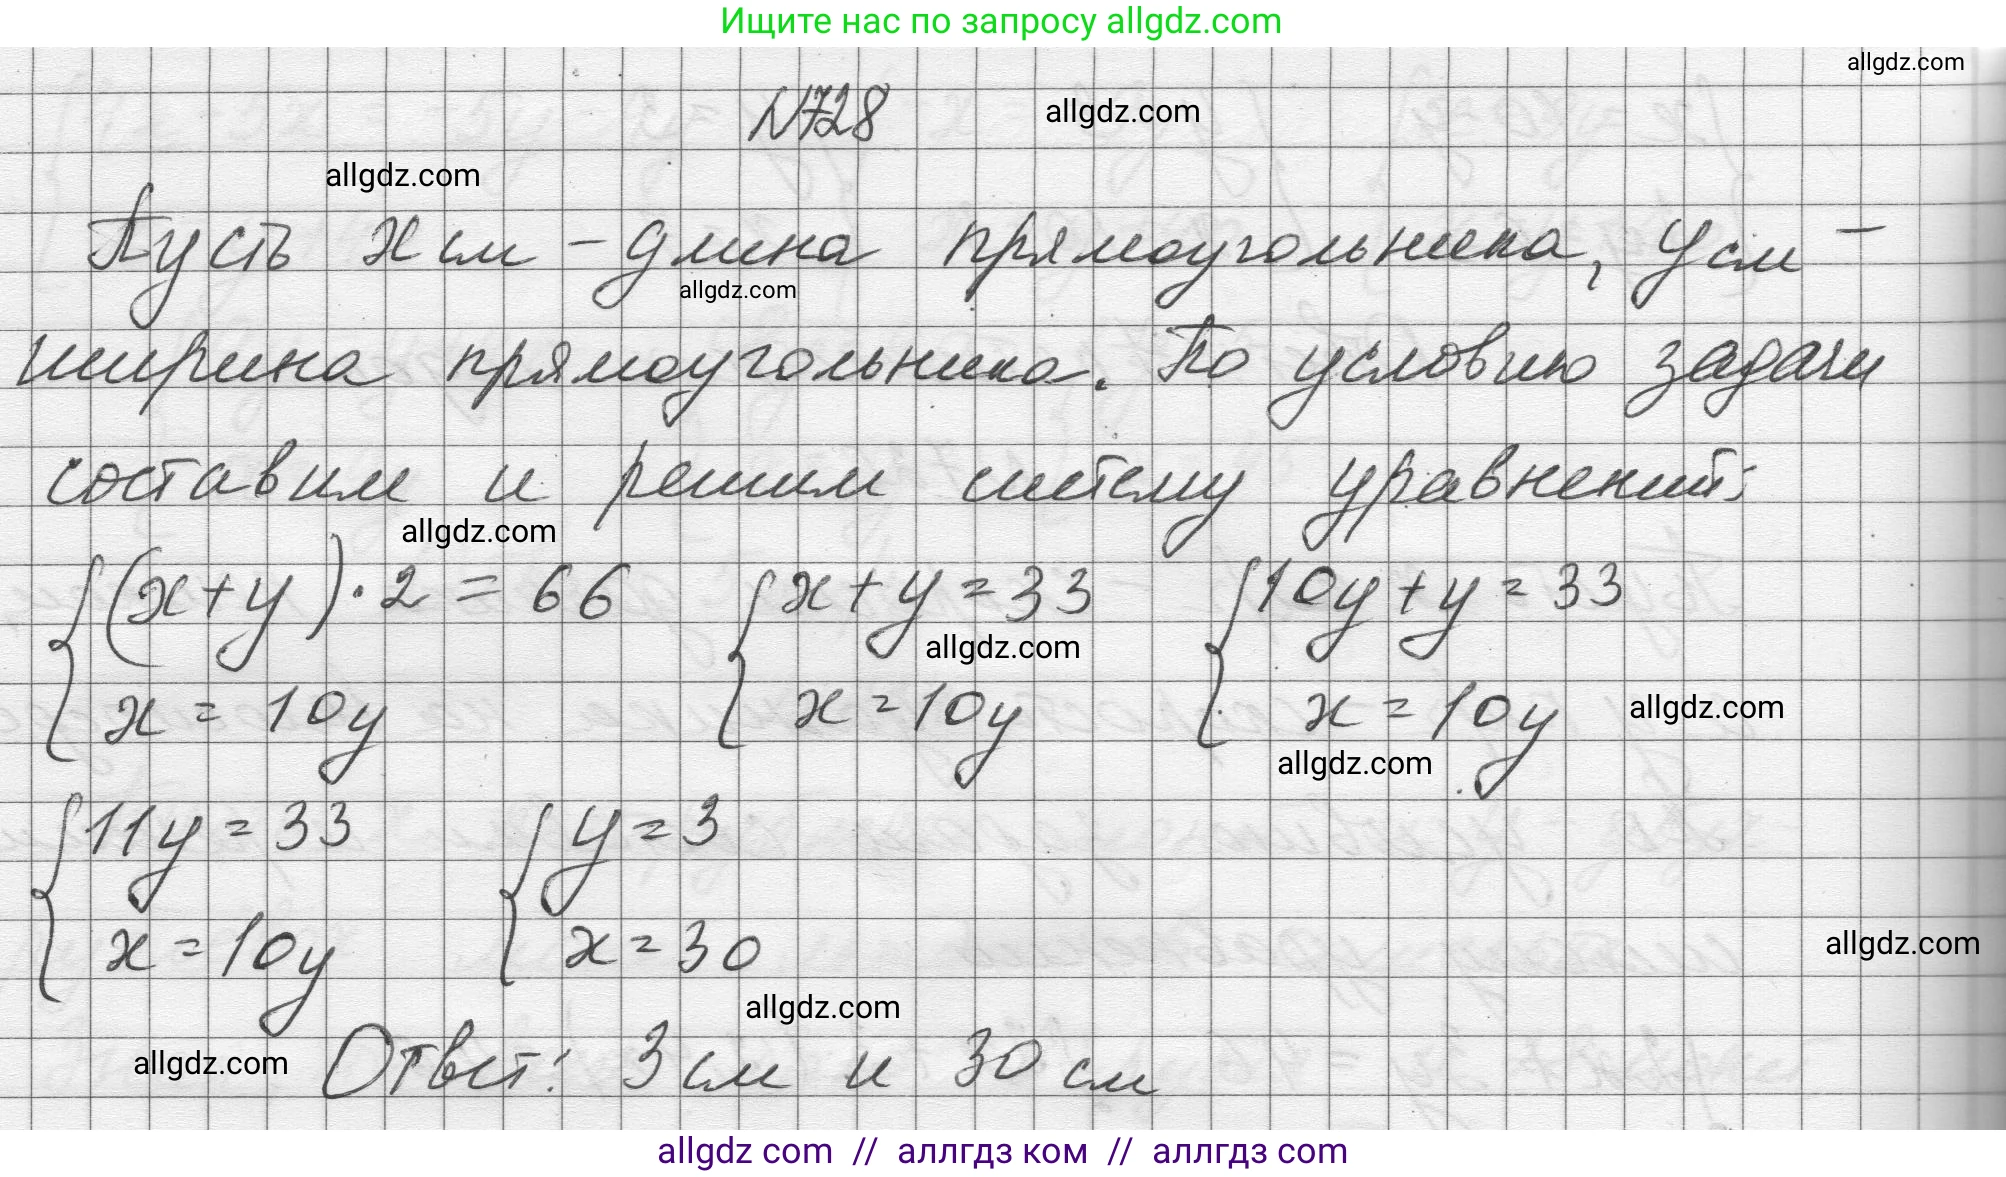 Ищите нас по запросу allgdz.com
allgdz.com
N728 allgdz.com
allgdz.com
Пусть x см – длина прямоугольника, y см –
allgdz.com
ширина прямоугольника. По условию задачи
составим и решим систему уравнений:
allgdz.com
{(x+y)·2=66 {x+y=33 {10y+y=33
allgdz.com
x=10y x=10y x=10y allgdz.com
allgdz.com
{11y=33 {y=3
x=10y x=30
allgdz.com
allgdz.com
allgdz.com Ответ: 3 см и 30 см
allgdz com // аллгдз ком // аллгдз com